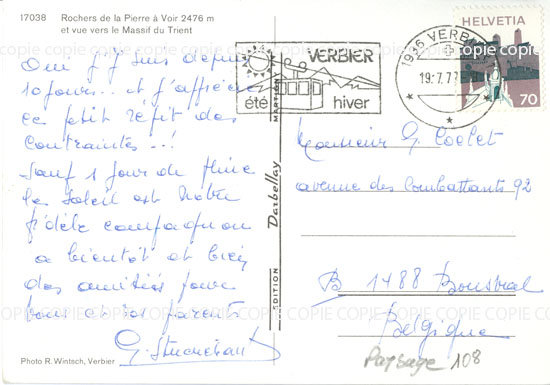 17038 Rochers de la Pierre à Voir 2476 m
et vue vers le Massif du Trient
Oui j'y suis depuis
10 jours... et j'apprécie
ce petit répit des
contraintes...!
Sauf 1 jour de pluie
le soleil est notre
fidèle compagnon
à bientôt et bien
des amitiés pour
vous et vos parents
VERBIER
été hiver
1936 VERBIER
19.7.77
HELVETIA
70
MARTIGNY
Darbellay
EDITION
Monsieur G. Coelet
avenue des Combattants 92
B 1488 Bousval
Belgique
Paysage 108
Photo R. Wintsch, Verbier
COPIE COPIE COPIE COPIE COPIE COPIE COPIE